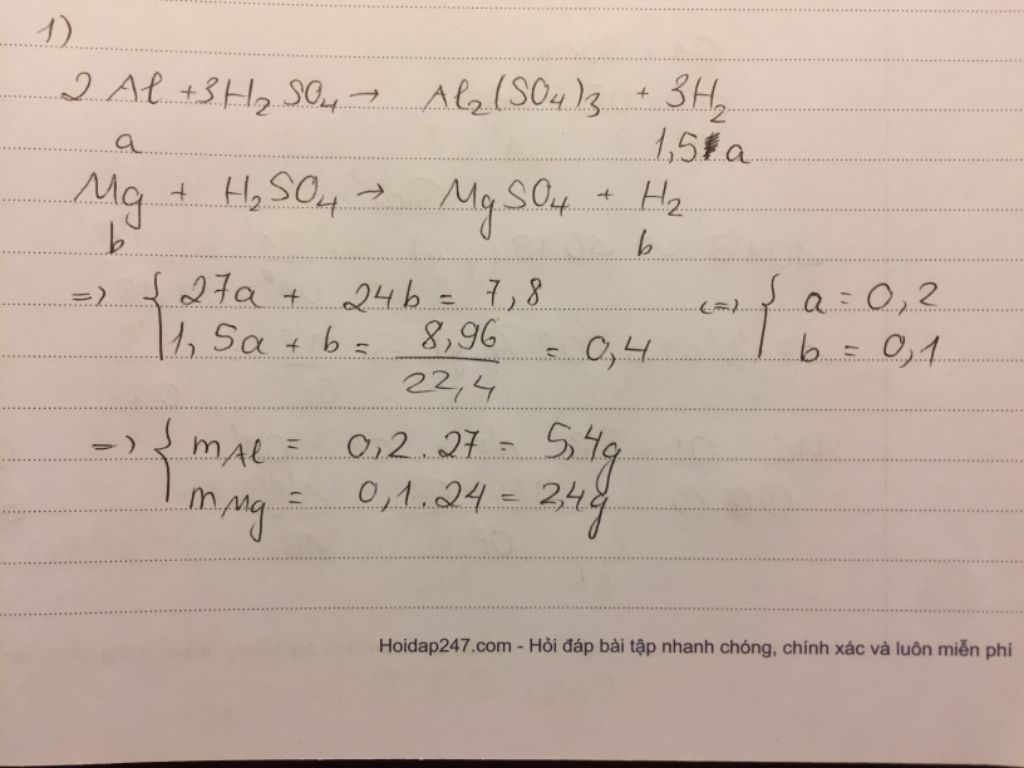 1)
2Al + 3H₂SO₄ → Al₂(SO₄)₃ + 3H₂
a 1,5 a
Mg + H₂SO₄ → MgSO₄ + H₂
b b
=> { 27a + 24b = 7,8 <=> { a = 0,2
1,5a + b = 8,96/22,4 = 0,4 b = 0,1
=> { mAl = 0,2 . 27 = 5,4g
mMg = 0,1 . 24 = 2,4g
Hoidap247.com - Hỏi đáp bài tập nhanh chóng, chính xác và luôn miễn phí